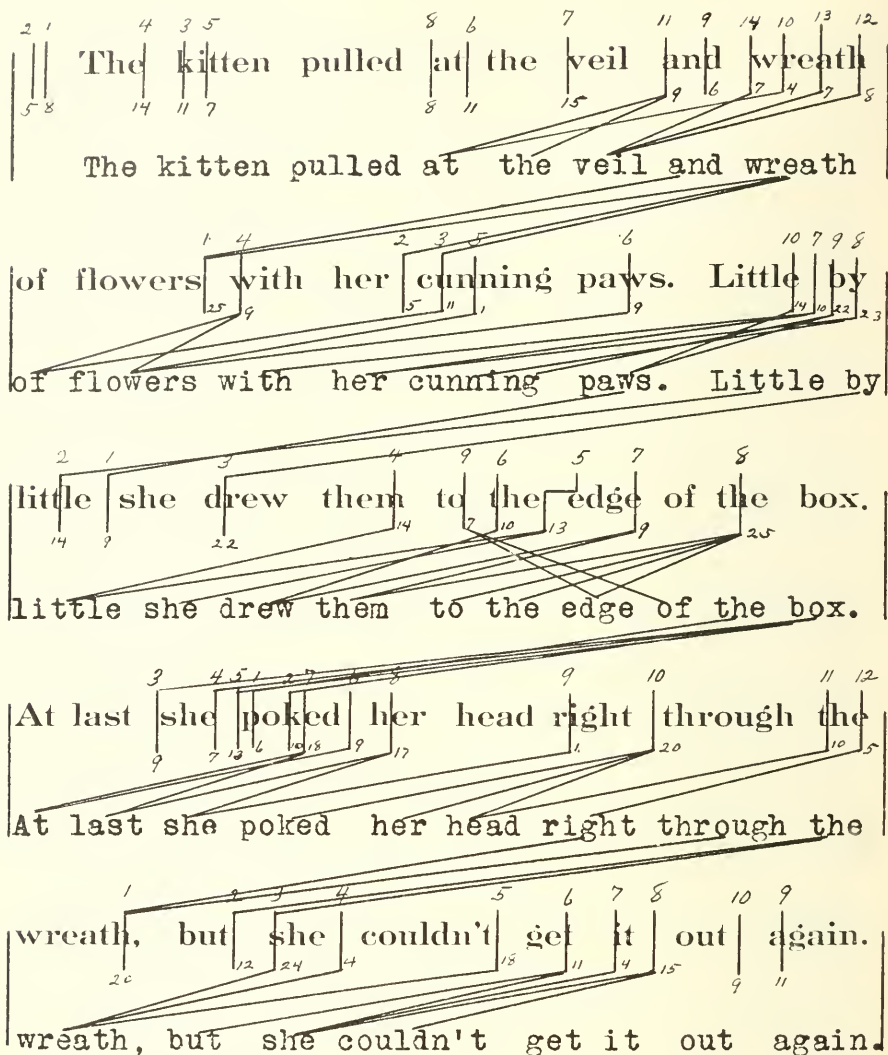 2 1 4 3 5 8 6 7 11 9 14 10 13 12
The kitten pulled at the veil and wreath
5 8 14 11 7 8 11 15 9 6 7 4 7 8
The kitten pulled at the veil and wreath
1 4 2 3 5 6 10 7 9 8
of flowers with her cunning paws. Little by
25 9 5 11 1 9 14 10 22 23
of flowers with her cunning paws. Little by
2 1 3 4 9 6 5 7 8
little she drew them to the edge of the box.
14 9 22 14 7 10 13 9 25
little she drew them to the edge of the box.
3 4 5 1 2 7 6 8 9 10 11 12
At last she poked her head right through the
9 7 13 6 10 18 9 17 1 20 10 5
At last she poked her head right through the
1 2 3 4 5 6 7 8 10 9
wreath, but she couldn't get it out again.
20 12 24 4 18 11 4 15 9 11
wreath, but she couldn't get it out again.